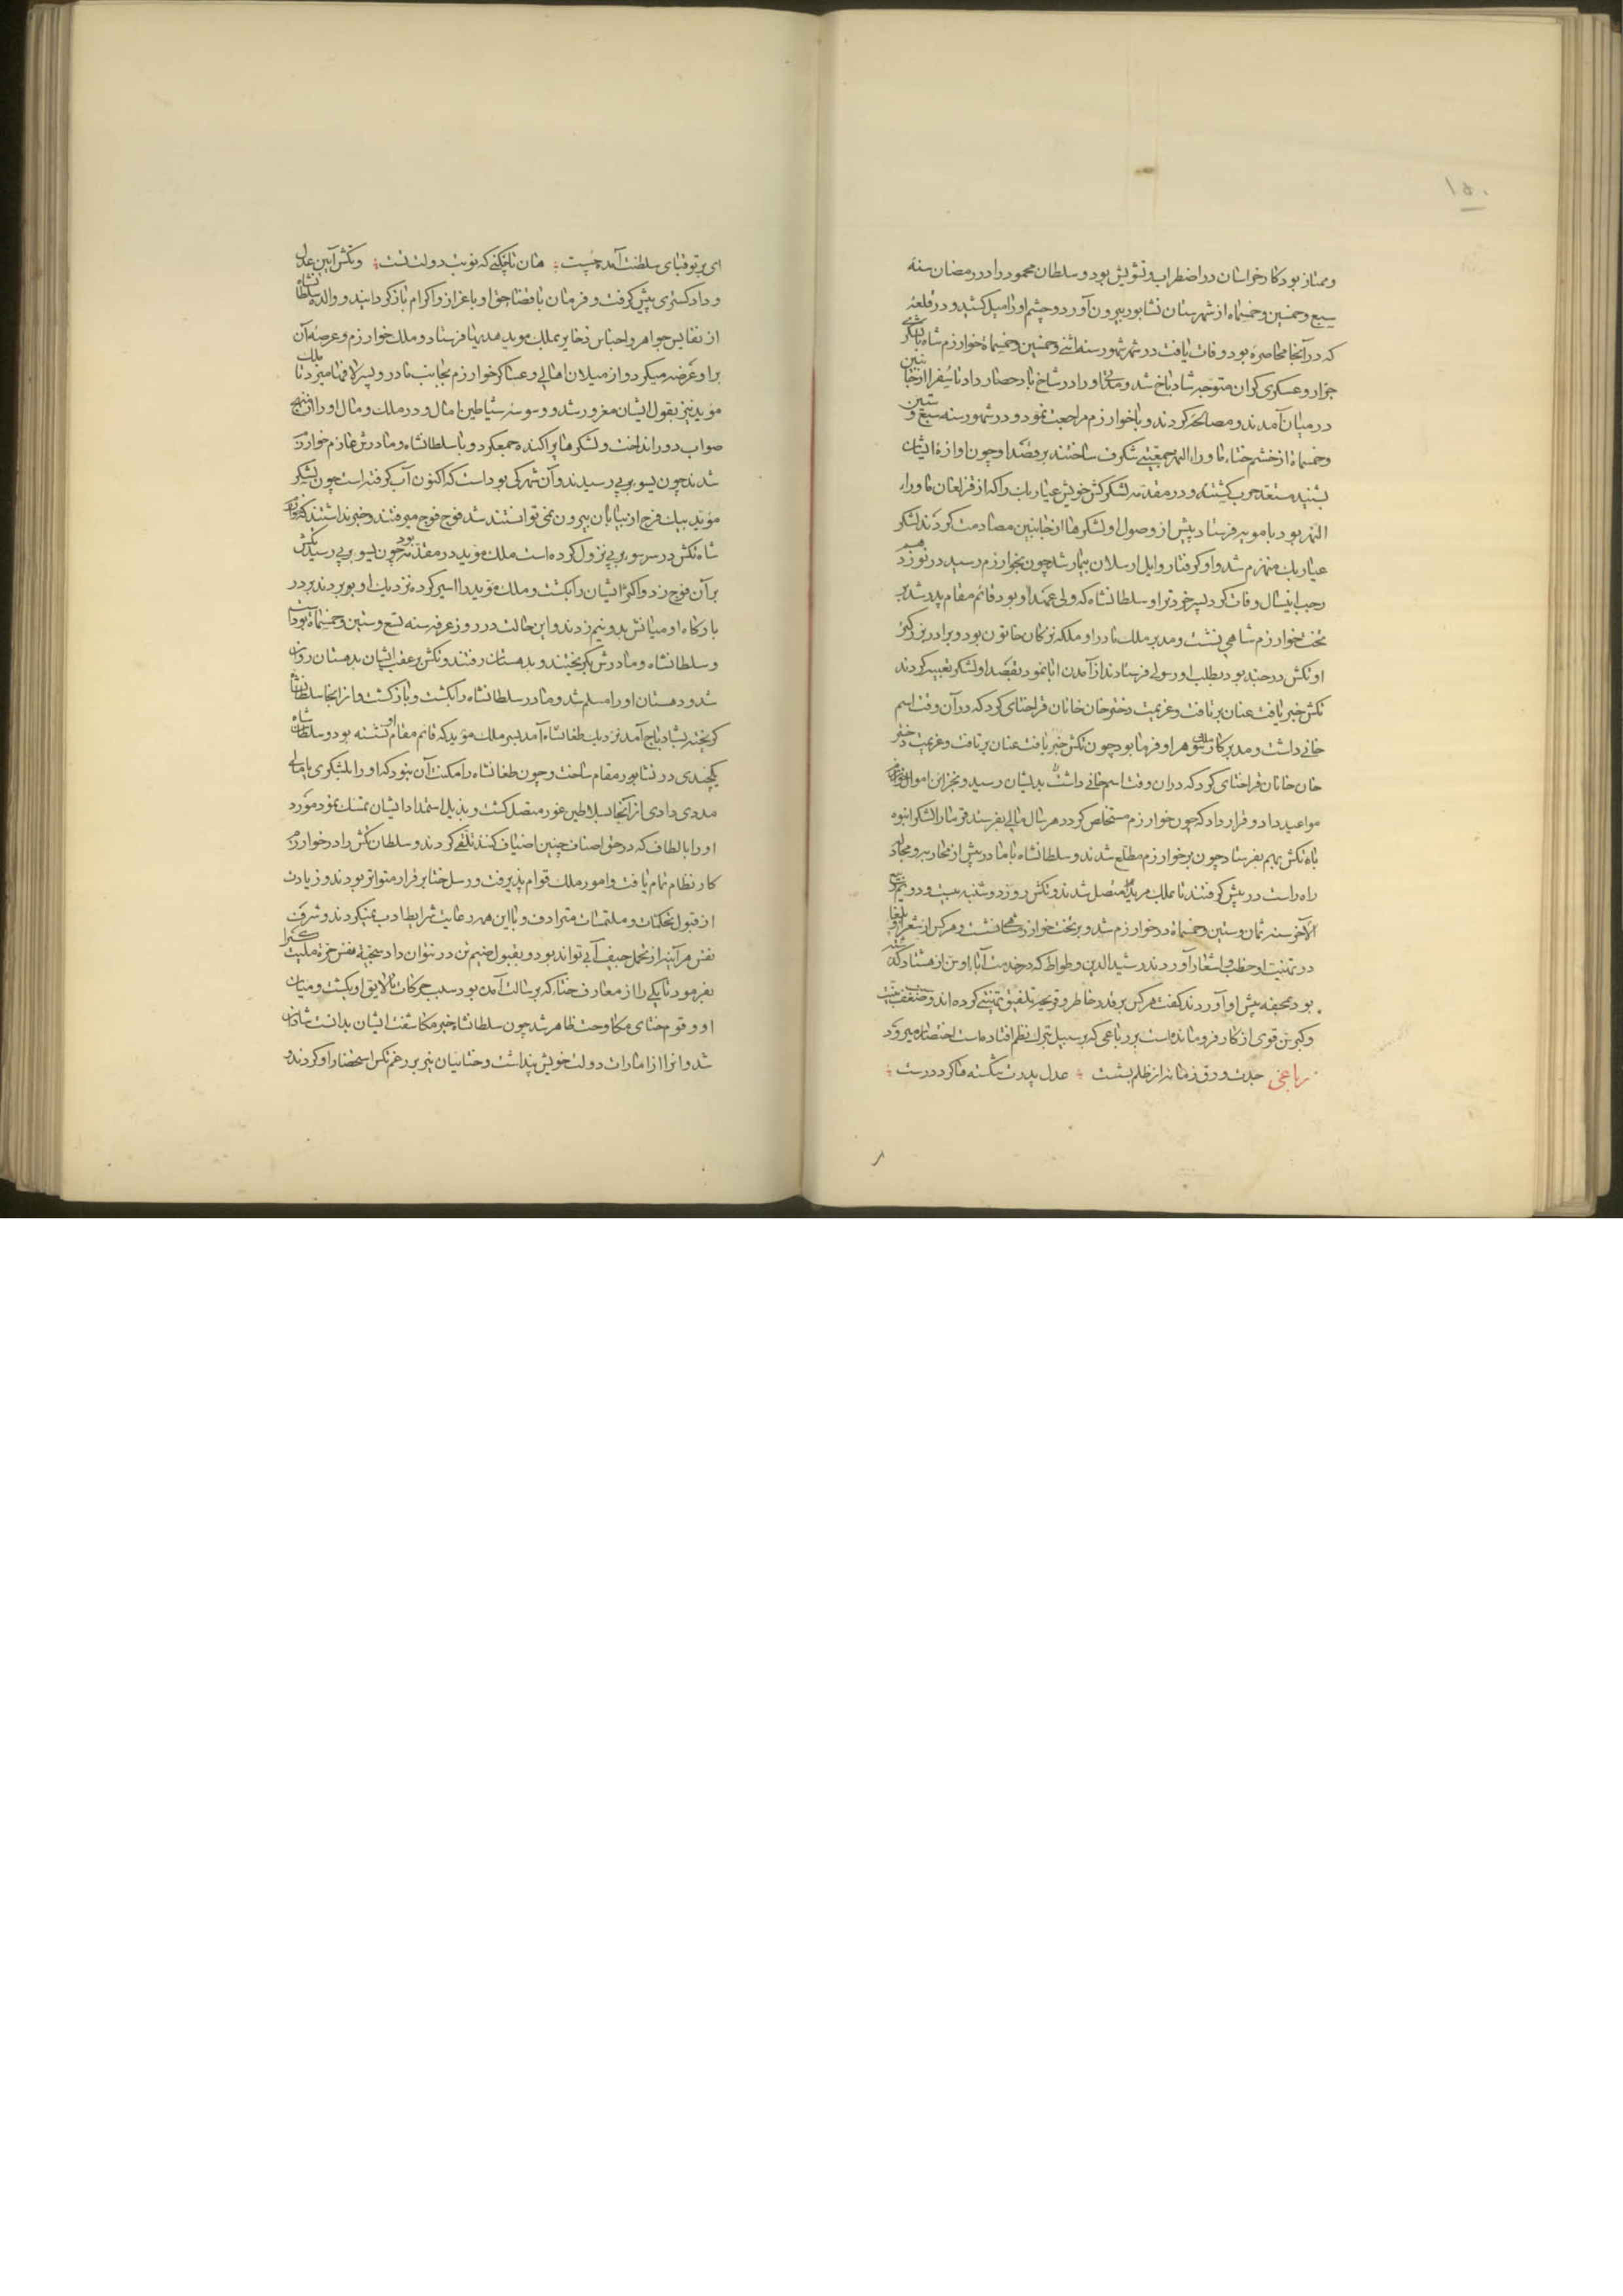 ۱۵۰
وممتاز بود کار خراسان در اضطراب و تشویش بود و سلطان محمود را در رمضان سنه
سبع وخمسین وخمسمایه از شهرستان نشابور بیرون آورد و چشم او را میل کشید و در قلعهٔ
که در آنجا محاصره بود وفات یافت در شهور سنه اثنی وخمسین وخمسمایهٔ خوارزم شاه با لشکری
جرار و عسکری کران متوجه شادیاخ شد و مدتی او را در شاخ یاد حصار داد تا سفرا از جانبین
در میان آمدند و مصالحه کردند و باخوارزم مراجعت نمود و در شهور سنه سبع و ستین
وخمسمایهٔ از خشم ختاء ماوراء النهر جمعیتی شکرف ساختند بر قصد او چون اوازهٔ ایشان
بشنید مستعد حرب کشته و در مقدمه لشکرکش خویش عیار بک را که از قزلغان ماوراء
النهر بود باموبه فرستاد پیش از وصول او لشکرها از جانبین مصادمت کردند لشکر
عیار بک منهزم شد و او کرفتار و ایل ارسلان بیمار شد چون بخوارزم رسید در نوزدهم
رجب اینسال وفات کرد پسر خردتر او سلطانشاه که ولی عهد او بود قائم مقام پدر شد بر
تخت خوارزم شاهی بنشست و مدبر ملک مادر او ملکه ترکان خاتون بود و برادر بزرکتر
او تکش در جند بود بطلب او رسولی فرستادند از آمدن ابا نمود بقصد او لشکر تعبیه کردند
تکش خبر یافت عنان برتافت و عزیمت دختر خان خانان قراختای کرد که در آن وقت اسم
خانی داشت و مدبر کار ملک شوهر او فرما بود چون تکش خبر یافت عنان برتافت و عزیمت دختر
خان خانان قراختای کرد که در ان وقت اسم خانی داشت بدیشان رسید و بخزاین اموال خوارزم
مواعید داد و قرار داد که چون خوارزم مستخلص کردد هر سال مالی بفرستد قرما را لشکر انبوه
باه تکش بهم بفرستاد چون بر خوارزم مطلع شدند و سلطانشاه با مادر پیش از محاربه و مجادله
راه راست در پیش کرفتند تا بملک موید متصل شدند و تکش روز دوشنبه بیست و دویم ربیع
الآخر سنه ثمان وستین وخمسمایه در خوارزم شد و بر تخت خوارزمشاهی نشست و هر کس از شعرا و بلغا
در تهنیت او خطب و اشعار آوردند رشید الدین وطواط که در خدمت آباء او سن از هشتاد کذشته
بود بمحفه پیش او آوردند کفت هر کس بر قدر خاطر و قریحه تلفیق تهنیتی کرده اند و بسبب ضعف بنیت
و کبر سن قوی از کار فرو مانده است بر رباعی که بر سبیل تبرک نظم افتاده است اختصار میرود
رباعی جدت ورق زمانه از ظلم بشست عدل پدرت شکسته ها کرد درست
ای بر تو قبای سلطنت آمده چست هان تا چکنی که نوبت دولت تست و تکش آیین عدل
و داد کستری پیش کرفت و فرمان باقضاء حق او باعزاز و اکرام بازکردانید و والده سلطانشاه
از نفایس جواهر و اجناس ذخایر بملک موید هدیها فرستاد و ملک خوارزم و عرصهٔ آن
بر او عرضه میکرد و از میلان اهالی و عساکر خوارزم بجانب مادر و پسر لافها میزد تا ملک
موید نیز بقول ایشان مغرور شد و وسوسهٔ شیاطین امال و در ملک و مال او را از منهج
صواب دور انداخت و لشکرها پراکنده جمع کرد و با سلطانشاه و مادرش عازم خوارزم
شدند چون بسوبرلی رسیدند و آن شهرکی بوداست که اکنون آب کرفته است چون لشکر
موید بیک فرج از بیابان بیرون نمی توانستند شد فوج فوج میرفتند و خبر نداشتند که خوارزم
شاه تکش در سر سوبرلی نزول کرده است ملک موید در مقدمه بود چون بسوبرلی رسید تکش
بر آن فوج زد و اکثر ایشان را بکشت و ملک موید را اسیر کرده نزدیک او بردند بر در
بارکاه او میانش بدو نیم زدند و این حالت در روز عرفه سنه تسع وستین وخمسمایه بود
و سلطانشاه و مادرش بکریختند و بدهستان رفتند و تکش بر عقب ایشان بدهستان روان
شد و دهستان او را مسلم شد و مادر سلطانشاه را بکشت و بازکشت و از انجا سلطانشاه
کریخته بشادیاخ آمد نزدیک طغانشاه آمد پسر ملک موید که قائم مقام او نشسته بود و سلطان شاه
یکچندی در نشابور مقام ساخت و چون طغانشاه را مکنت آن نبود که او را بلشکری یا مالی
مددی دادی از آنجا بسلاطین غور متصل کشت و بذیل استمداد ایشان تمسک نمود مورد
او را بالطاف که در حق اصناف چنین اضیاف کنند تلقی کردند و سلطان تکش را در خوارزم
کار نظام تمام یافت و امور ملک قوام پذیرفت و رسل ختا بر قرار متواتر بودند و زیادت
از قبول تحکمات و ملتمسات مترادف و با این همه رعایت شرایط ادب نمیکردند و شرف
نفس هر آینه از تحمل حیف آبی تواند بود و بقبول ضیم تن در نتوان داد سجیهٔ نفس حره ملیت کبرا
بفرمود تا یکی را از معارف ختا که برسالت آمده بود سبب حرکات نالایق او بکشت و میان
او و قوم ختای مکاوحت ظاهر شد چون سلطانشاه خبر مکاشفت ایشان بدانست شادمان
شد و انرا از امارات دولت خویش پنداشت و ختاییان نیز بر رغم تکش استحضار او کردند و